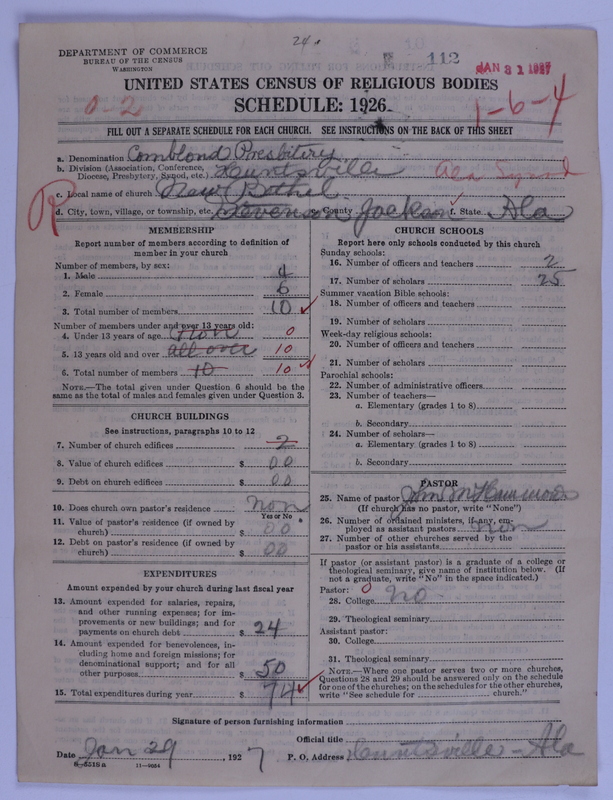 24.
112
JAN 31 1927
DEPARTMENT OF COMMERCE
BUREAU OF THE CENSUS
WASHINGTON
UNITED STATES CENSUS OF RELIGIOUS BODIES
SCHEDULE: 1926
0-2
1-6-4
FILL OUT A SEPARATE SCHEDULE FOR EACH CHURCH. SEE INSTRUCTIONS ON THE BACK OF THIS SHEET
a. Denomination Comblond Presbitery
b. Division (Association, Conference, Diocese, Presbytery, Synod, etc.) Huntsville Ala Synod
c. Local name of church New Bethel
R
d. City, town, village, or township, etc. Stevenson County Jackson f. State Ala
MEMBERSHIP
Report number of members according to definition of
member in your church
Number of members, by sex:
1. Male 4
2. Female 6
3. Total number of members 10
Number of members under and over 13 years old:
4. Under 13 years of age non 0
5. 13 years old and over all over 10
6. Total number of members 10 10
NOTE.—The total given under Question 6 should be
same as the total of males and females given under Question 3.
CHURCH BUILDINGS
See instructions, paragraphs 10 to 12
7. Number of church edifices 2
8. Value of church edifices $ 00
9. Debt on church edifices $ 00
10. Does church own pastor's residence non
Yes or No
11. Value of pastor's residence (if owned by
church) $ 00
12. Debt on pastor's residence (if owned by
church) $ 00
EXPENDITURES
Amount expended by your church during last fiscal year
13. Amount expended for salaries, repairs,
and other running expenses; for im-
provements or new buildings; and for
payments on church debt $ 24
14. Amount expended for benevolences, in-
cluding home and foreign missions; for
denominational support; and for all
other purposes $ 50
15. Total expenditures during year $ 74
CHURCH SCHOOLS
Report here only schools conducted by this church
Sunday schools:
16. Number of officers and teachers 2
17. Number of scholars 25
Summer vacation Bible schools:
18. Number of officers and teachers
19. Number of scholars
Week-day religious schools:
20. Number of officers and teachers
21. Number of scholars
Parochial schools:
22. Number of administrative officers
23. Number of teachers—
a. Elementary (grades 1 to 8)
b. Secondary
24. Number of scholars—
a. Elementary (grades 1 to 8)
b. Secondary
PASTOR
25. Name of pastor John M
(If church has no pastor, write "None")
26. Number of ordained ministers, if any, em-
ployed as assistant pastors non
27. Number of other churches served by the
pastor or his assistants
If pastor (or assistant pastor) is a graduate of a college or
theological seminary, give name of institution below. (If
not a graduate, write "No" in the space indicated.)
Pastor: 0
28. College no
29. Theological seminary
Assistant pastor:
30. College
31. Theological seminary
NOTE.—Where one pastor serves two or more churches,
Questions 28 and 29 should be answered only on the schedule
for one of the churches; on the schedules for the other churches,
write "See schedule for church."
Signature of person furnishing information
Official title
Date Jan 29, 1927 P. O. Address Huntsville - Ala
8-5518a 11-9034